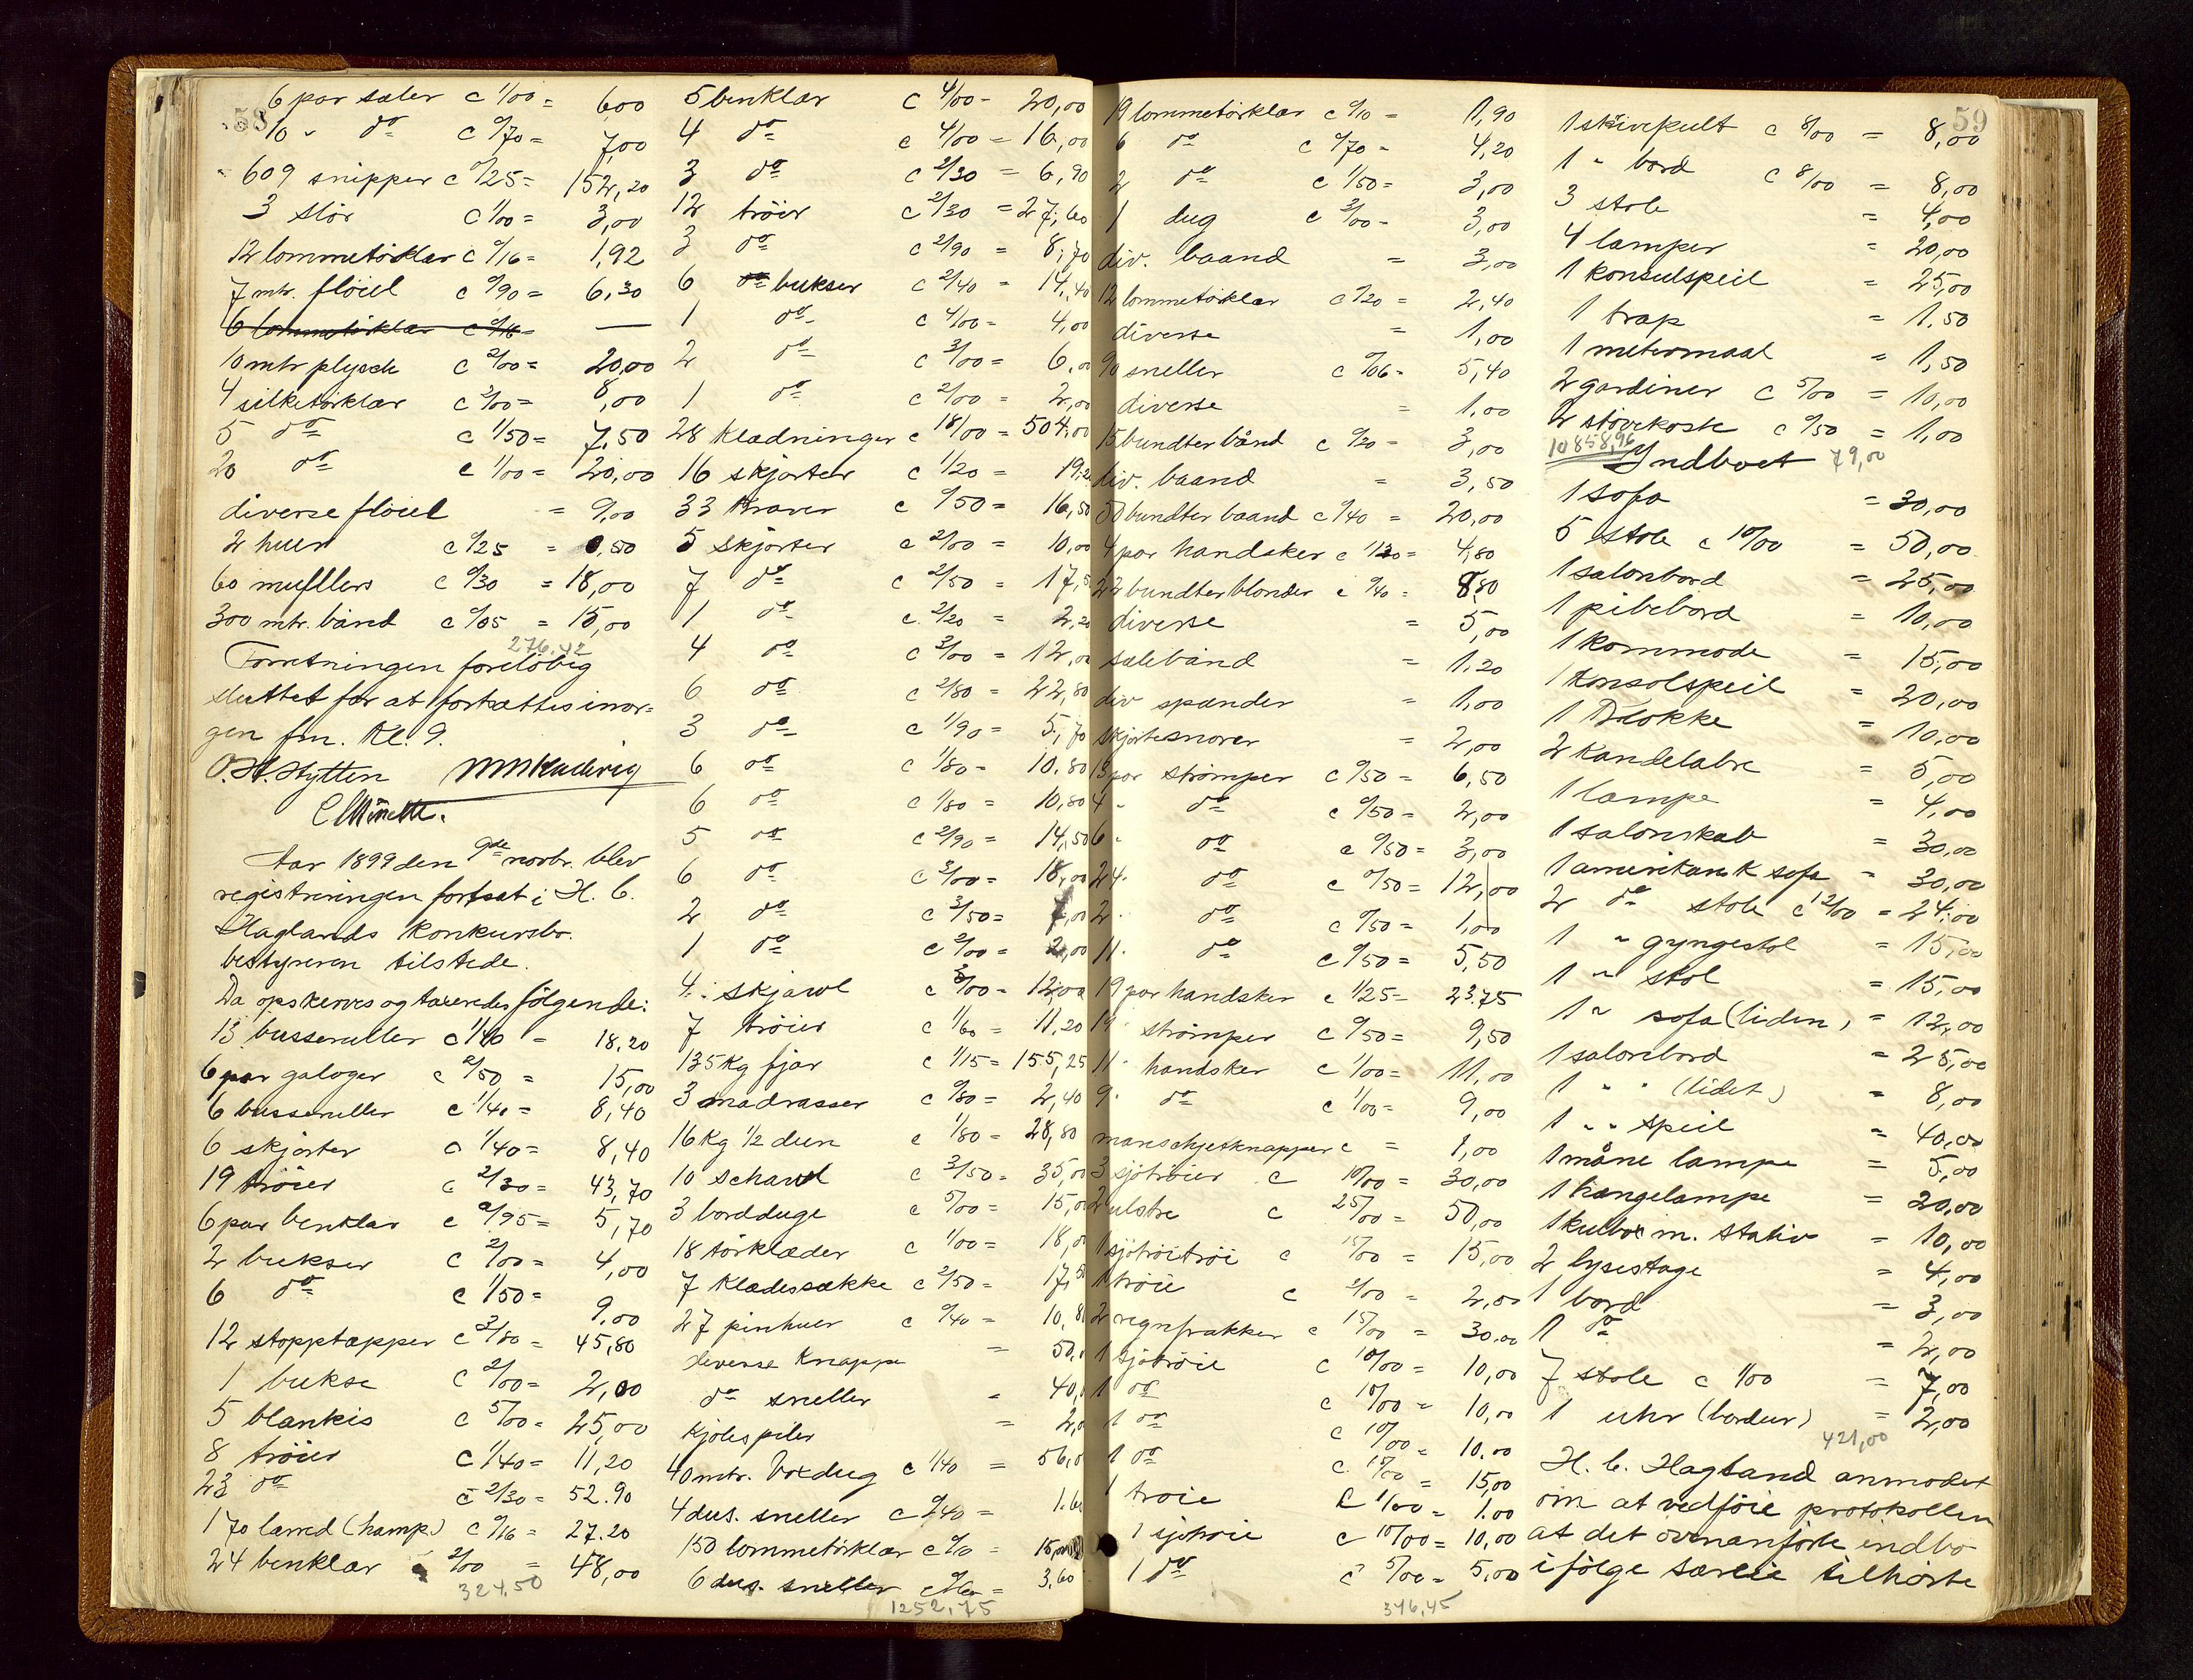 58
6 par saler c 1/00 = 6,00
10 " do c 0/70 = 7,00
609 snipper c 0/25 = 152,20
3 slör c 1/00 = 3,00
12 lommetörklær c 0/16 = 1,92
7 mtr. flöiel c 0/90 = 6,30
6 lommetörklær c 0/16 = —
10 mtr plysch c 2/00 = 20,00
4 silketörklær c 2/00 = 8,00
5 do c 1/50 = 7,50
20 do c 1/00 = 20,00
diverse flöiel = 9,00
2 huer c 0/25 = 0,50
60 mufflers c 0/30 = 18,00
300 mtr. bånd c 0/05 = 15,00
276,42
Forretningen forelöbig
sluttet for at fortsættes imor=
gen fm. Kl. 9.
O. H. Hytten
Aar 1899 den 9de novbr. blev
registreringen fortsat i H. C.
Haglands Konkursbo.
bestyreren tilstede.
Da opskreves og taxeredes følgende:
13 busseruller c 1/40 = 18,20
6 par galoger c 2/50 = 15,00
6 busseruller c 1/40 = 8,40
6 skjorter c 1/40 = 8,40
19 tröier c 2/30 = 43,70
6 par benklær c 0/95 = 5,70
2 bukser c 2/00 = 4,00
6 do c 1/50 = 9,00
12 stopptæpper c 3/80 = 45,80
1 bukse c 2/00 = 2,00
5 blankis c 5/00 = 25,00
8 tröier c 1/40 = 11,20
23 do c 2/30 = 52.90
170 lærred (hamp.) c 0/16 = 27.20
24 benklær c 2/00 = 48,00
324,50
5 benklær c 4/00 - 20,00
4 do c 4/00 = 16,00
3 do c 2/30 = 6,90
12 tröier c 2/30 = 27,60
3 do c 2/90 = 8,70
6 do bukser c 2/40 = 14,40
1 do c 4/00 = 4,00
2 do c 3/00 = 6,00
1 do c 2/00 = 2,00
28 Klædninger c 18/00 = 504,00
16 skjorter c 1/20 = 19,2
33 Kraver c 0/50 = 16,50
5 skjorter c 2/00 = 10,00
7 do c 2/50 = 17,5
1 do c 2/20 = 2,20
4 do c 3/00 = 12,00
6 do c 2/80 = 22,80
3 do c 1/90 = 5,70
6 do c 1/80 = 10.80
6 do c 1/80 = 10,80
5 do c 2/90 = 14,50
6 do c 3/00 = 18,00
2 do c 3/50 = 7,00
1 do c 2/00 = 2,00
4 skjawl c 3/00 = 12,00
7 tröier c 1/60 = 11,20
135 Kg fjær c 1/15 = 155,25
3 madrasser c 0/80 = 2,40
16 Kg 1/2 dun c 1/80 = 28,80
10 schawl c 3/50 = 35,00
3 bordduge c 5/00 = 15,0
18 törklæder c 1/00 = 18,0
7 Klædessække c 2/50 = 17,50
27 pinhuer c 0/40 = 10,8
diverse Knapper = 50,
do sneller = 40,
Kjolespiler = 2,0
40 mtr. Voxdug c 1/40 = 56,0
4 dus. sneller c 0/40 = 1.60
150 lommetörklær c 0/10 = 15,00
6 dus. sneller c 0/60 = 3,60
1252,75
19 lommetörklær c 0/10 = 1,90
6 do c 0/70 = 4,20
2 do c 1/50 = 3,00
1 dug c 3/00 = 3,00
div. baand = 3,00
12 lommetörklær c 0/20 = 2,40
diverse = 1,00
90 sneller c 0/06 = 5,40
diverse = 1,00
15 bundter bånd c 0/20 = 3,00
div. baand = 3,50
50 bundter baand c 0/40 = 20,00
4 par handsker c 1/20 = 4,80
22 bundter blonder c 0/40 = 8,80
diverse = 5,00
salebånd = 1,20
div spænder = 1,00
skjortesnorer = 2,00
13 par strömper c 0/50 = 6,50
4 " do c 0/50 = 2,00
6 " do c 0/50 = 3,00
24 " do c 0/50 = 12,00
2 " do c 0/50 = 1,00
11 " do c 0/50 = 5,50
19 par handsker c 1/25 = 23.75
19 " strömper c 0/50 = 9,50
11 " handsker c 1/00 = 11,00
9 " do c 1/00 = 9,00
manschjetknapper c = 1,00
3 sjötröier c 10/00 = 30,00
2 ulstre c 25/00 = 50,00
1 sjötröitröi c 15/00 = 15,00
1 tröie c 2/00 = 2,00
2 regnfrakker c 15/00 = 30.00
1 sjötröie c 10/00 = 10,00
1 do c 10/00 = 10,00
1 do c 10/00 = 10.00
1 do c 15/00 = 15,00
1 tröie c 1/00 = 1.00
1 sjötröie c 10/00 = 10,00
1 do c 5/00 = 5,00
376,45
59
1 skrivepult c 8/00 = 8,00
1 " bord c 8/00 = 8,00
3 stole = 4,00
4 lamper = 20,00
1 konsulspeil = 25,00
1 trap = 1,50
1 metermaal = 1,50
2 gardiner c 5/00 = 10,00
2 stövekoste c 0/50 = 1,00
10858,96 Indboet 79,00
1 sofa = 30,00
5 stole c 10/00 = 50,00
1 salonbord = 25,00
1 pibebord = 10,00
1 kommode = 15,00
1 Konsolspeil = 20,00
1 Klokke = 10,00
2 Kandelabre = 5,00
1 lampe = 4,00
1 salonskab = 30,00
1 amerikansk sofa = 30,00
2 do stole c 12/00 = 24,00
1 " gyngestol = 15,00
1 " stol = 15,00
1 " sofa (liden) = 12,00
1 salonbord = 25,00
1 " " (lidet) = 8,00
1 " " speil = 40,00
1 måne lampe = 5,00
1 hængelampe = 20,00
1 kulbox m. stativ = 10,00
2 lysestage = 4,00
1 bord = 3,00
1 do = 2,00
7 stole c 1/00 = 7,00
1 uhr (bordur) = 2,00
421,00
H. C. Hagland anmodet
om at vedföie protokollen
at det ovenanförte indbo
ifölge særeie tilhörte